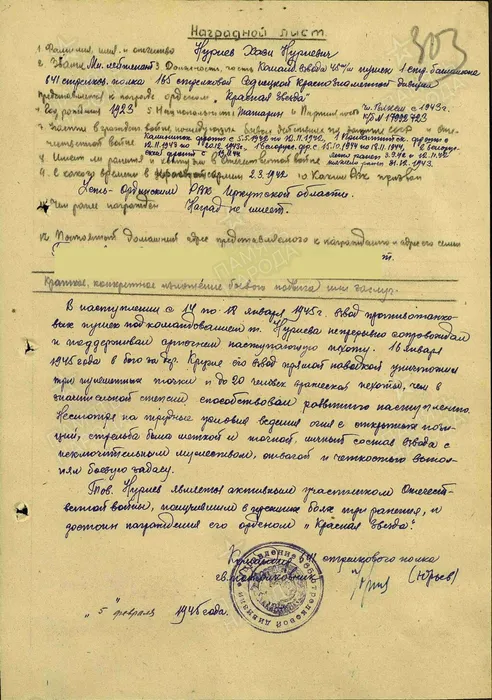 303
Наградной лист
1. Фамилия, имя и отчество Нуриев Хази Нуриевич
2. Звание Мл. лейтенант 3. Должность, часть Команд. взвода 45 м/м пушек 1 стр. батальона
641 стрелков. полка 165 стрелковой Седлецкой Краснознаменной дивизии
Представляется к награде орденом „Красная Звезда“
4. Год рождения 1923 5. Национальность татарин 6. Партийность чл. ВКП(б) с 1943г.
7. Участие в гражданской войне, последующих боевых действиях по защите СССР и отечественной войне
8. Имеет ли ранения и контузии в Отечественной войне
9. С какого времени в Красной армии 2.3.1942 10 Каким РВК призван
Усть-Ордынским РВК Иркутской области.
11. Чем ранее награжден Наград не имеет.
12. Постоянный домашний адрес представляемого к награждению и адрес его семьи
Краткое, конкретное изложение боевого подвига или заслуг.
В наступлении с 14 по 18 января 1945г. взвод противотанко-
вых пушек под командованием т. Нуриева непрерывно сопровождал
и поддерживал огнем наступающую пехоту. 16 января
1945 года в бою за дер. его взвод прямой наводкой уничтожил
три пулеметных точки и до 20 человек вражеской пехоты, чем в
значительной степени способствовал развитию наступления.
Несмотря на трудные условия ведения огня с открытых пози-
ций, стрельба была меткой и точной, личный состав взвода с
исключительным мужеством, отвагой и четкостью выпол-
нял боевую задачу.
Тов. Нуриев является активным участником Отечест-
венной войны, получившим в прошлых боях три ранения, и
достоин награждения его орденом „Красная Звезда“.
Командир 641 стрелкового полка
подполковник (Юрьев)
„5“ февраля 1945 года.